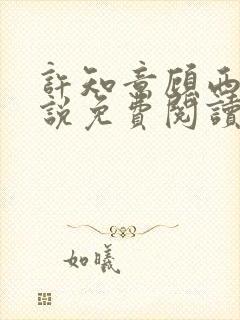 許知章顧西
說免費閱讀
如曦